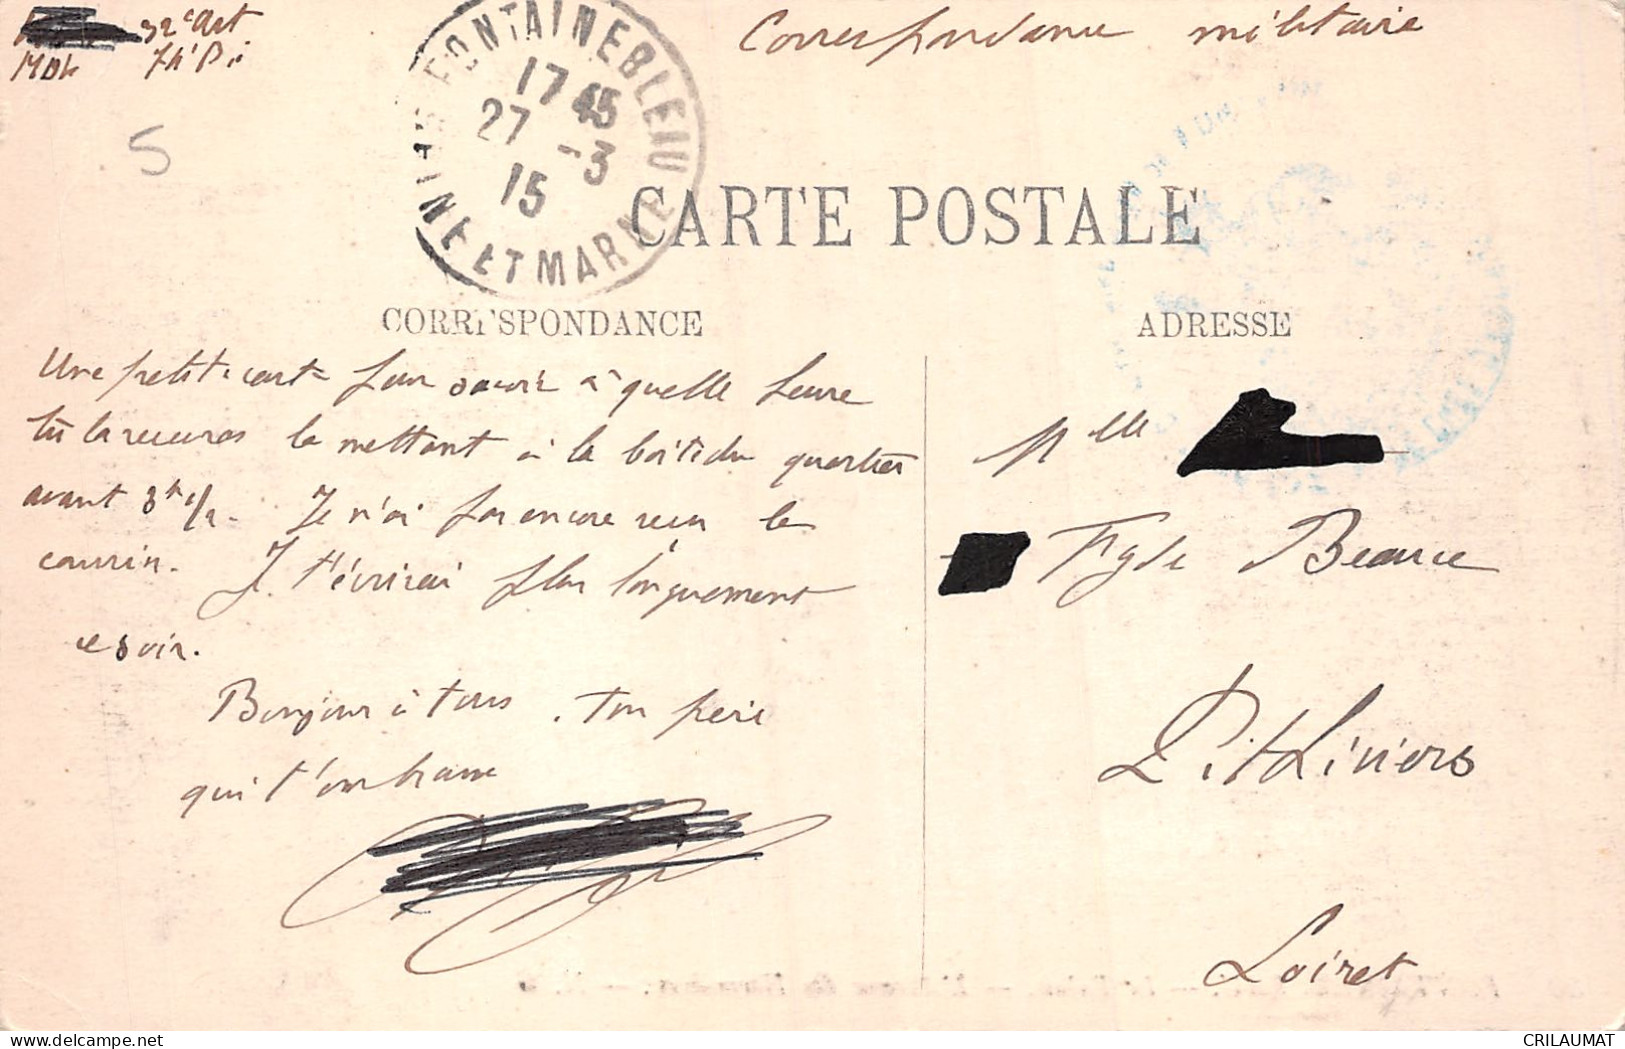 32e Art
MDL
Correspondance militaire
FONTAINEBLEAU
17 45
27 -3
15
SEINE ET MARNE
5
CARTE POSTALE
CORRESPONDANCE
ADRESSE
Une petite carte pour savoir à quelle heure
tu la recevras la mettant à la boîte du quartier
avant 3h 1/2. Je n'ai pas encore reçu le
courrier. Je t'écrirai plus longuement
ce soir.
Bonjour à tous. Ton père
qui t'embrasse
Mlle
Fg de Beauce
Pithiviers
Loiret
CRILAUMAT